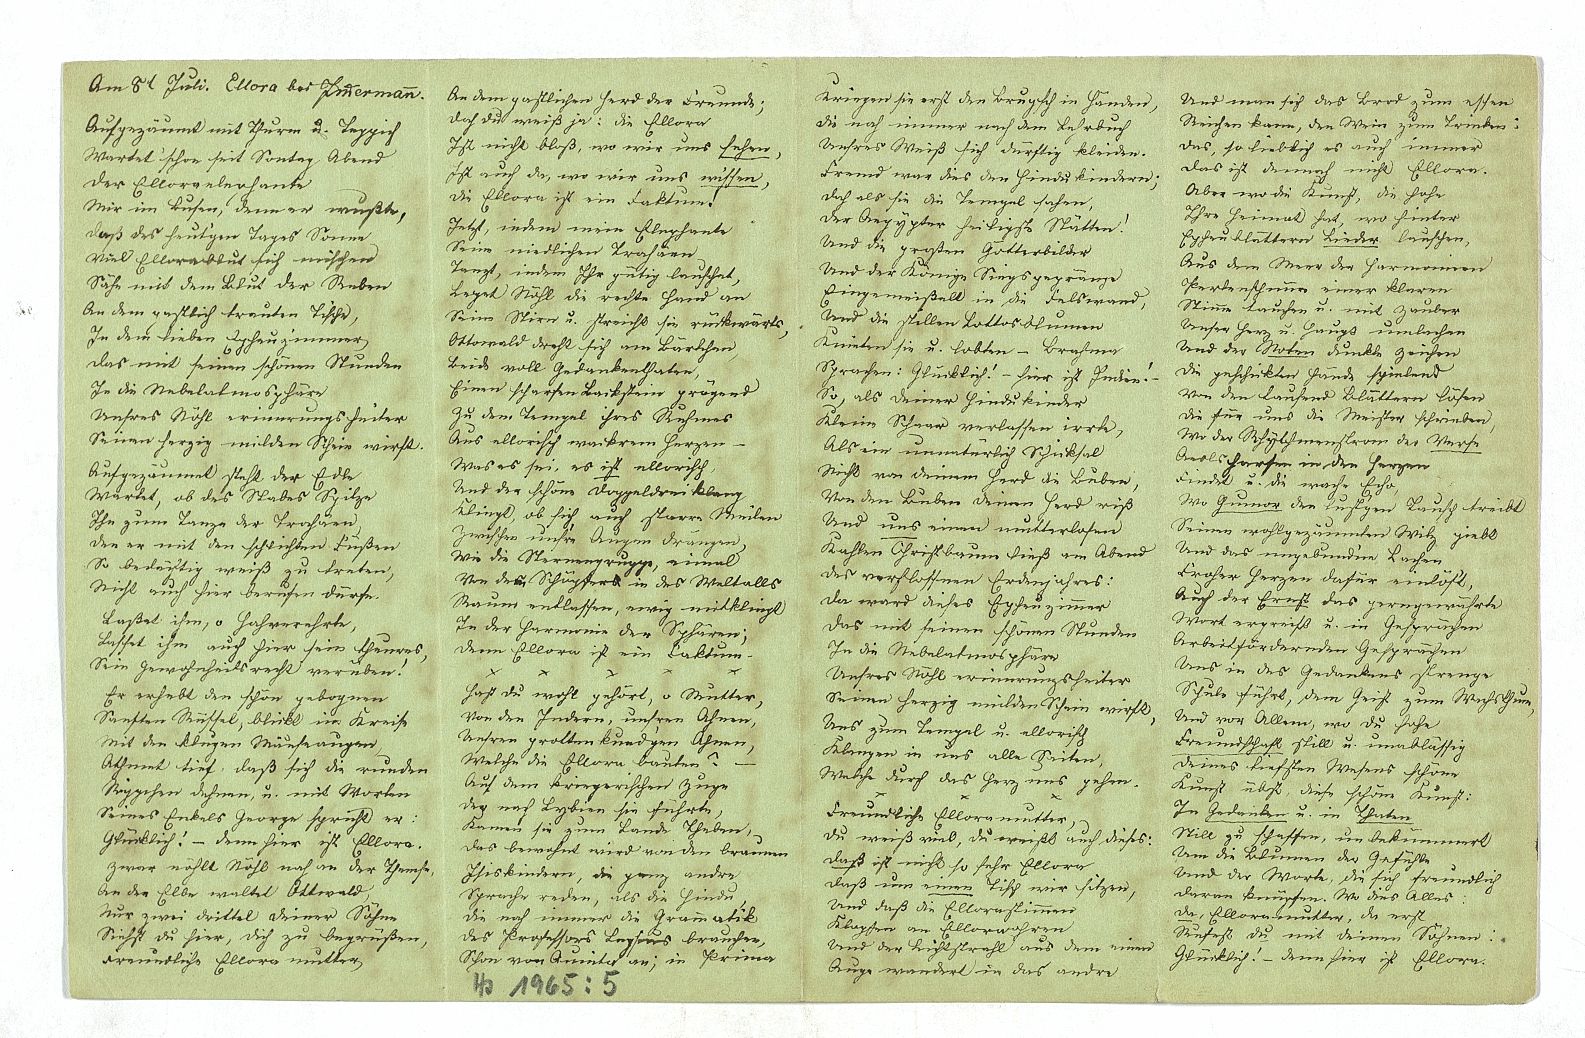 Am 8t Juli. Ellora bei Zimmermann.
Aufgezäumt mit Thurm u. Teppich
Wartet schon seit Sontag Abend
Der Elloraelephante
Mir im Busen, denn er wußte,
Daß des heut'gen Tages Sonne
Viel Ellorablut sich mischen
Sähe mit dem Blut der Reben
An dem gastlich trauten Tische,
In dem lieben Epheuzimmer,
Das mit seinen schönen Stunden
In die Nebelatmosphäre
Unsres Nöhl erinnrungsheiter
Seinen herzig milden Schein wirft.
Aufgezäumet steht der Edle
Wartet, ob des Stabes Spitze
Ihn zum Tanze der Trochäen,
Den er mit den schlichten Füßen
So bedächtig weiß zu treten,
Nicht auch hier berufen dürfe.
Laßet ihm, o Hochverehrte,
Lasset ihm auch hier sein theures,
Sein Gewohnheitsrecht verüben!
Er erhebt den schön gebognen
Sanften Rüssel, blickt im Kreise
Mit den klugen Mäuseaugen,
Athmet tief, daß sich die runden
Rippchen dehnen, u. mit Worten
Seines Enkels George spricht er:
Glücklich! – denn hier ist Ellora.
Zwar nöhlt Nöhl noch an der Themse,
An der Elbe waltet Ottwald,
Nur zwei drittel deiner Söhne
Siehst du hier, dich zu begrüßen,
Freundliche Elloramutter,
An dem gastlichen Herd der Freunde;
Doch du weiß ja: die Ellora
Ist nicht bloß, wo wir uns sehen,
Ist auch da, wo wir uns wissen,
Die Ellora ist ein Faktum!
Jetzt, indem mein Elephante
Seine niedlichen Trochäen
Tanzt, indem Ihr gütig lauschet,
Leget Nöhl die rechte Hand an
Seine Stirn u. streicht sie rückwärts,
Ottowald dreht sich am Bärtchen,
Beide voll Gedankenthaten,
Einen scharfen Backstein prägend
Zu dem Tempel ihres Ruhmes
Aus ellorisch wackrem Herzen –
Was es sei, es ist ellorisch,
Und der schöne Doppeldreiklang
Klingt, ob sich auch starre Meilen
Zwischen unsre Augen drängen,
Wie die Sternengruppe, einmal
Von des Schöpfers in des Weltalls
Raum entlassen, ewig mitklingt
In der Harmonie der Sphären;
Denn Ellora ist ein Faktum. –
x x x x
Hast du wohl gehört, o Mutter,
Von den Indern, unsren Ahnen,
Unsren grottenkund'gen Ahnen,
Welche die Ellora bauten? –
Auf dem kriegerischen Zuge
Der nach Lybien sie führte,
Kamen sie zum Lande Theben,
Das bewohnt wird von den braunen
Isiskindern, die ganz andre
Sprache reden, als die Hindu,
Die noch immer die Grammatik
Des Professors Lepsius brauchen,
Schon von Quinta an; in Prima
Kriegen sie erst den Brugsch in Händen,
Die noch immer nach dem Lehrbuch
Unsres Weiß sich dürftig kleiden.
Fremd war dies den Hindukindern;
Doch als sie die Tempel sahen,
Der Aegypter heiligste Stätten!
Und die großen Götterbilder
Und der Könige Siegsgepränge
Eingemeißelt in die Felswand,
Und die stillen Lottosblumen
Knieten sie u. lobten – Brahma
Sprachen: Glücklich! – hier ist Indien! –
So, als deiner Hindukinder
Kleine Schaar verlassen irrte,
Als ein unnatürlich Schicksal
Nicht von deinem Herd die Buben,
Von den Buben deinen Herd riß
Und uns einen mutterlosen
Kahlen Christbaum ließ am Abend
Des verflossnen Erdenjahres:
Da ward dieses Epheuzimmer
Das mit seinen schönen Stunden
In die Nebelatmosphäre
Unsres Nöhl erinnrungsheiter
Seinen herzig milden Schein wirft,
Uns zum Tempel u. ellorisch
Klingen in uns alle Saiten,
Welche durch das Herz uns gehen.
x x x
Freundliche Elloramutter,
Du weiß viel, du weißt auch dieses:
Daß ist nicht so sehr Ellora
Daß um einen Tisch wir sitzen,
Und daß die Ellorastimmen
Klopfen an Elloraohren
Und der Lichtstrahl aus dem einen
Auge wandert in das andre
Und man sich das Brod zum essen
Reichen kann, den Wein zum Trinken:
Das, so lieblich es auch immer
Das ist dennoch nicht Ellora.
Aber wo die Kunst, die hohe
Ihre Heimat hat, wo hinter
Epheublättern Lieder lauschen,
Aus dem Meer der Harmonieen
Perlenschnüre einer klaren
Stimme tauchen u. mit Zauber
Unser Herz u. Haupt umlachen
Und der Noten dunkle Zeichen
Die geschickten Hände spielend
Von den tausend Blättern lösen
Die für uns die Meister schrieben,
Wo der Rhythmenstrom der Verse
Aeolsharfen in den Herzen
Findet u. die wache Echo,
Wo Humor den lust'gen Tausch treibt
Seinen wohlgezäumten Witz giebt
Und das ungebundne Lachen
Froher Herzen dafür einlöst,
Auch der Ernst das gerngewährte
Wort ergreift u. in Gesprächen
Arbeitfördernden Gesprächen
Uns in des Gedankens strenge
Schule führt, dem Geist zum Wachsthum,
Und vor Allem, wo du hohe
Freundschaft still u. unablässig
Deines tiefsten Wesens schöne
Kunst übst, diese schöne Kunst:
In Gedanken u. in Thaten
Still zu schaffen, unbekümmert
Um die Blumen der Gefühle
Und der Worte, die sich freundlich
Daran knüpfen. Wo dies Alles:
Da, Elloramutter, da erst
Rufest du mit deinen Söhnen:
Glücklich! – denn hier ist Ellora.
Hs 1965: 5